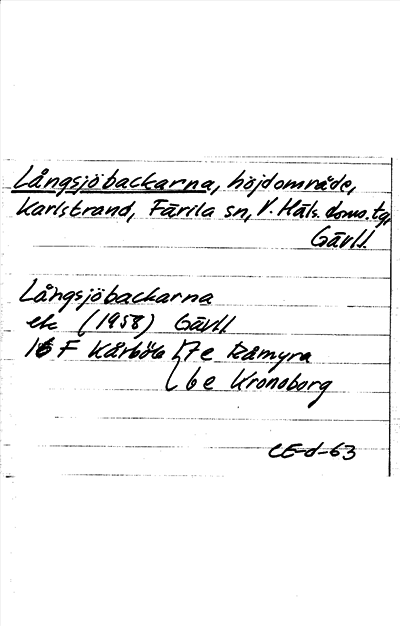 Långsjöbackarna, höjdområde,
Karlstrand, Färila sn, V. Häls. doms. tg,
Gävll.
Långsjöbackarna
ek (1958) Gävll
16 F Kårböle 7e Råmyra
6e Kronoborg
CE-d-63